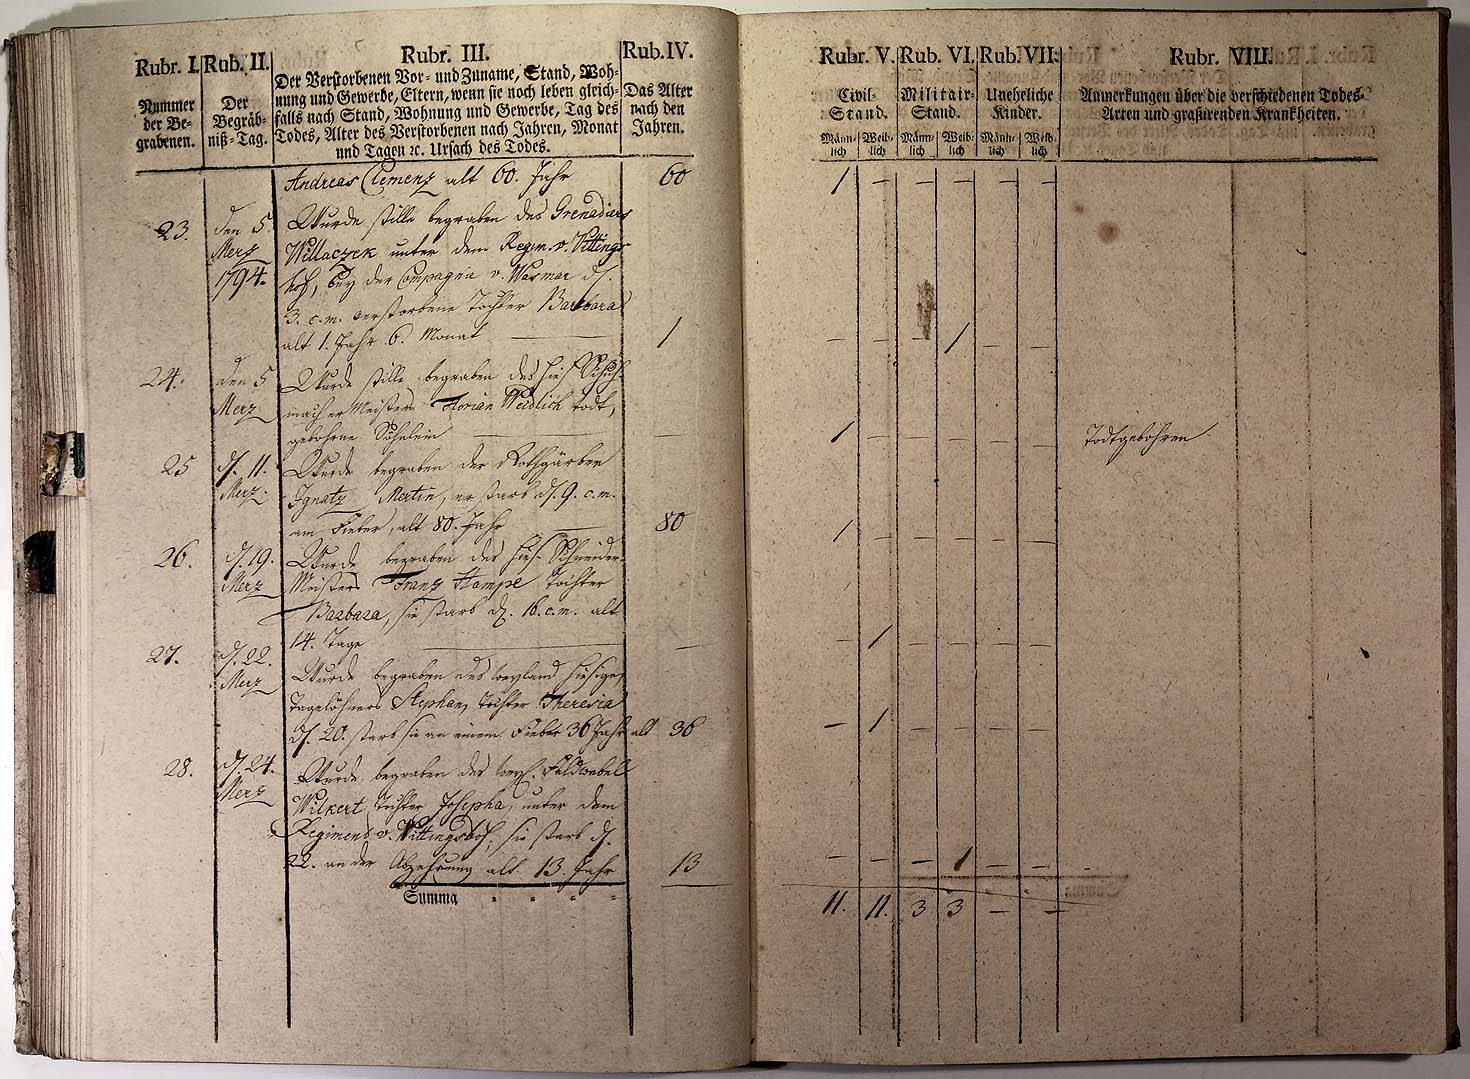 Rubr. I.
Nummer
der Be-
grabenen.
Rub. II.
Der
Begräb-
niß-Tag.
Rubr. III.
Der Verstorbenen Vor- und Zuname, Stand, Woh-
nung und Gewerbe, Eltern, wenn sie noch leben gleich-
falls nach Stand, Wohnung und Gewerbe, Tag des
Todes, Alter des Verstorbenen nach Jahren, Monat
und Tagen ꝛc. Ursach des Todes.
Rub. IV.
Das Alter
nach den
Jahren.
Rubr. V.
Civil-
Stand.
Männ-
lich
Weib-
lich
Rub. VI.
Militair-
Stand.
Männ-
lich
Weib-
lich
Rub. VII.
Uneheliche
Kinder.
Männ-
lich
Weib-
lich
Rubr. VIII.
Anmerkungen über die verschiedenen Todes-
Arten und graßirenden Krankheiten.
Andreas Clemenz alt 60. Jahr 60 1 – – – – –
23. den 5. Wurde stille begraben des Grenadiers
Merz Willaczek unter dem Regim. v. Vittings
1794. hof, bey der Compagnie v. Wasmar d.
3. c.m. verstorbene Tochter Barbara
alt 1. Jahr 6. Monat — 1 – – – 1 – –
24. den 5 Wurde stille begraben des hies. Schuh-
Merz macher Meisters Florian Weidlich todt,
gebohrne Söhnlein — — 1 – – – – – Todtgebohren
25 d. 11. Wurde begraben der Rothgärber
Merz. Ignatz Mertin, er starb d. 9. c.m.
am Fieber, alt 80. Jahr — 80 1 – – – – –
26. d. 19. Wurde begraben des hies. Schneider-
Merz Meisters Franz Hampe Tochter
Barbara, sie starb d. 16. c.m. alt
14. Tage — — – 1 – – – –
27. d. 22. Wurde begraben des weyland hiesigen
Merz Tagelöhners Stephan, Tochter Theresia
d. 20. starb sie an einem Fieber 36 Jahr alt 36 – 1 – – – –
28. d. 24. Wurde begraben des weyl. Feldwebel
Merz Wilkert Tochter Josepha, unter dem
Regiment v. Vittingshof, sie starb d.
22. an der Abzehrung alt 13. Jahr 13 – – – 1 – –
Summa 11. 11. 3 3 – –